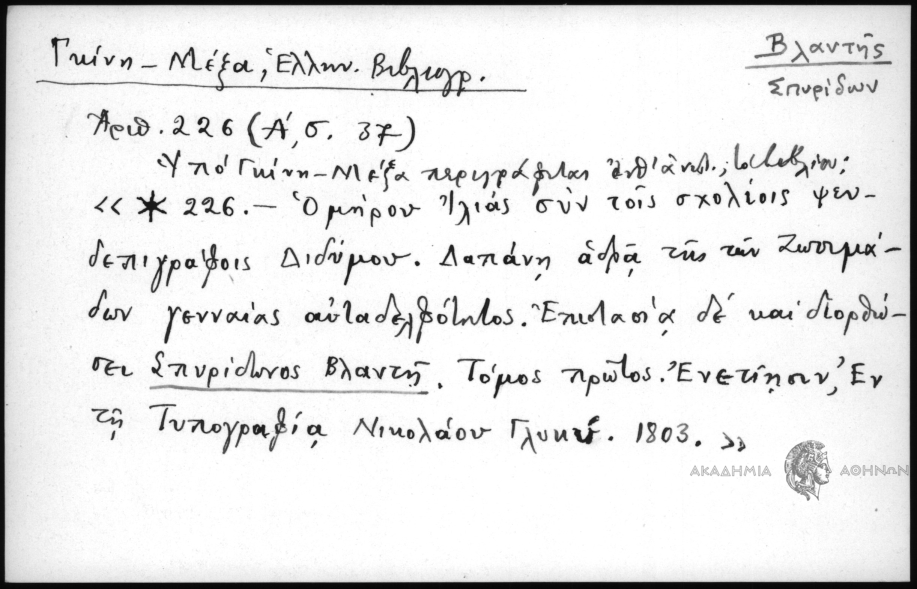 Γκίνη – Μέξα, Ἑλλην. Βιβλιογρ.
Βλαντῆς
Σπυρίδων
Ἀριθ. 226 (Α΄, σ. 37)
Ὑπό Γκίνη–Μέξα περιγράφεται
« * 226. – Ὁμήρου Ἰλιάς σύν τοῖς σχολίοις ψευ-
δεπιγράφοις Διδύμου. Δαπάνῃ ἁδρᾷ τῆς τῶν Ζωσιμά-
δων γενναίας αὐταδελφότητος. Ἐπιστασίᾳ δέ καί διορθώ-
σει Σπυρίδωνος Βλαντῆ. Τόμος πρῶτος. Ἐνετίῃσιν, Ἐν
τῇ Τυπογραφίᾳ Νικολάου Γλυκύ. 1803. »
ΑΚΑΔΗΜΙΑ ΑΘΗΝΩΝ